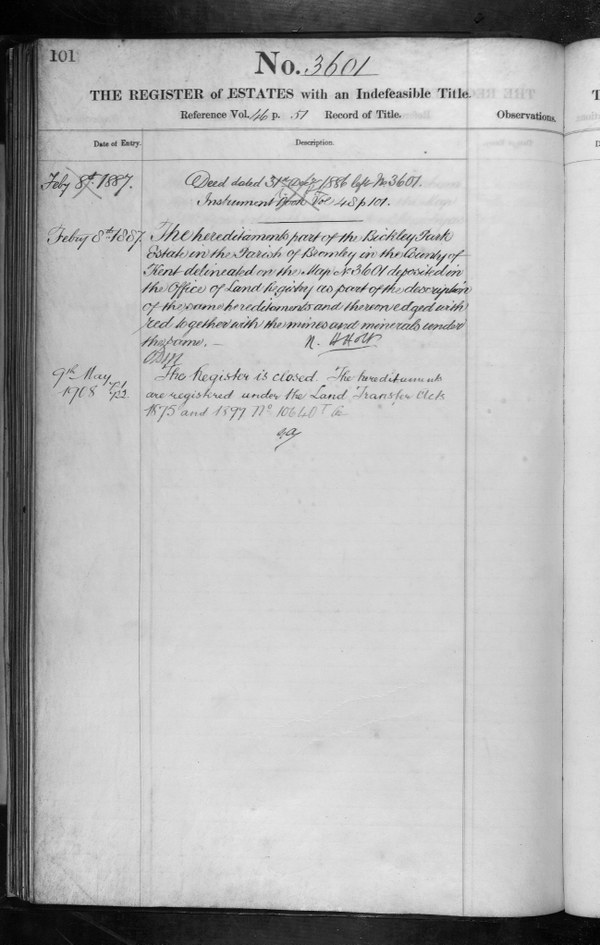 101
No. 3601
THE REGISTER of ESTATES with an Indefeasible Title.
Reference Vol. 46 p. 51 Record of Title.
Observations.
Date of Entry.
Description.
Feby 8th 1887.
Deed dated 31st 1886 No 3601.
Instrument Vol 48 p 101.
Febry 8th 1887.
The hereditaments part of the Bickley Park
Estate in the Parish of Bromley in the County of
Kent delineated on the Map No 3601 deposited in
the Office of Land Registry as part of the description
of the same hereditaments and thereon edged with
red together with the mines and minerals under
the same. —
N. Holt
9th May
1908
The Register is closed. The hereditaments
are registered under the Land Transfer Acts
1875 and 1897 No 10640